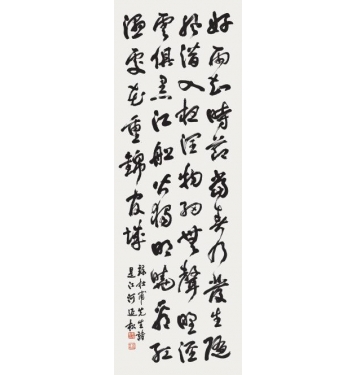 好雨知時節當春乃發生隨
風潛入夜潤物細無聲野徑
雲俱黑江船火獨明曉看紅
濕處花重錦官城
錄杜甫先生詩